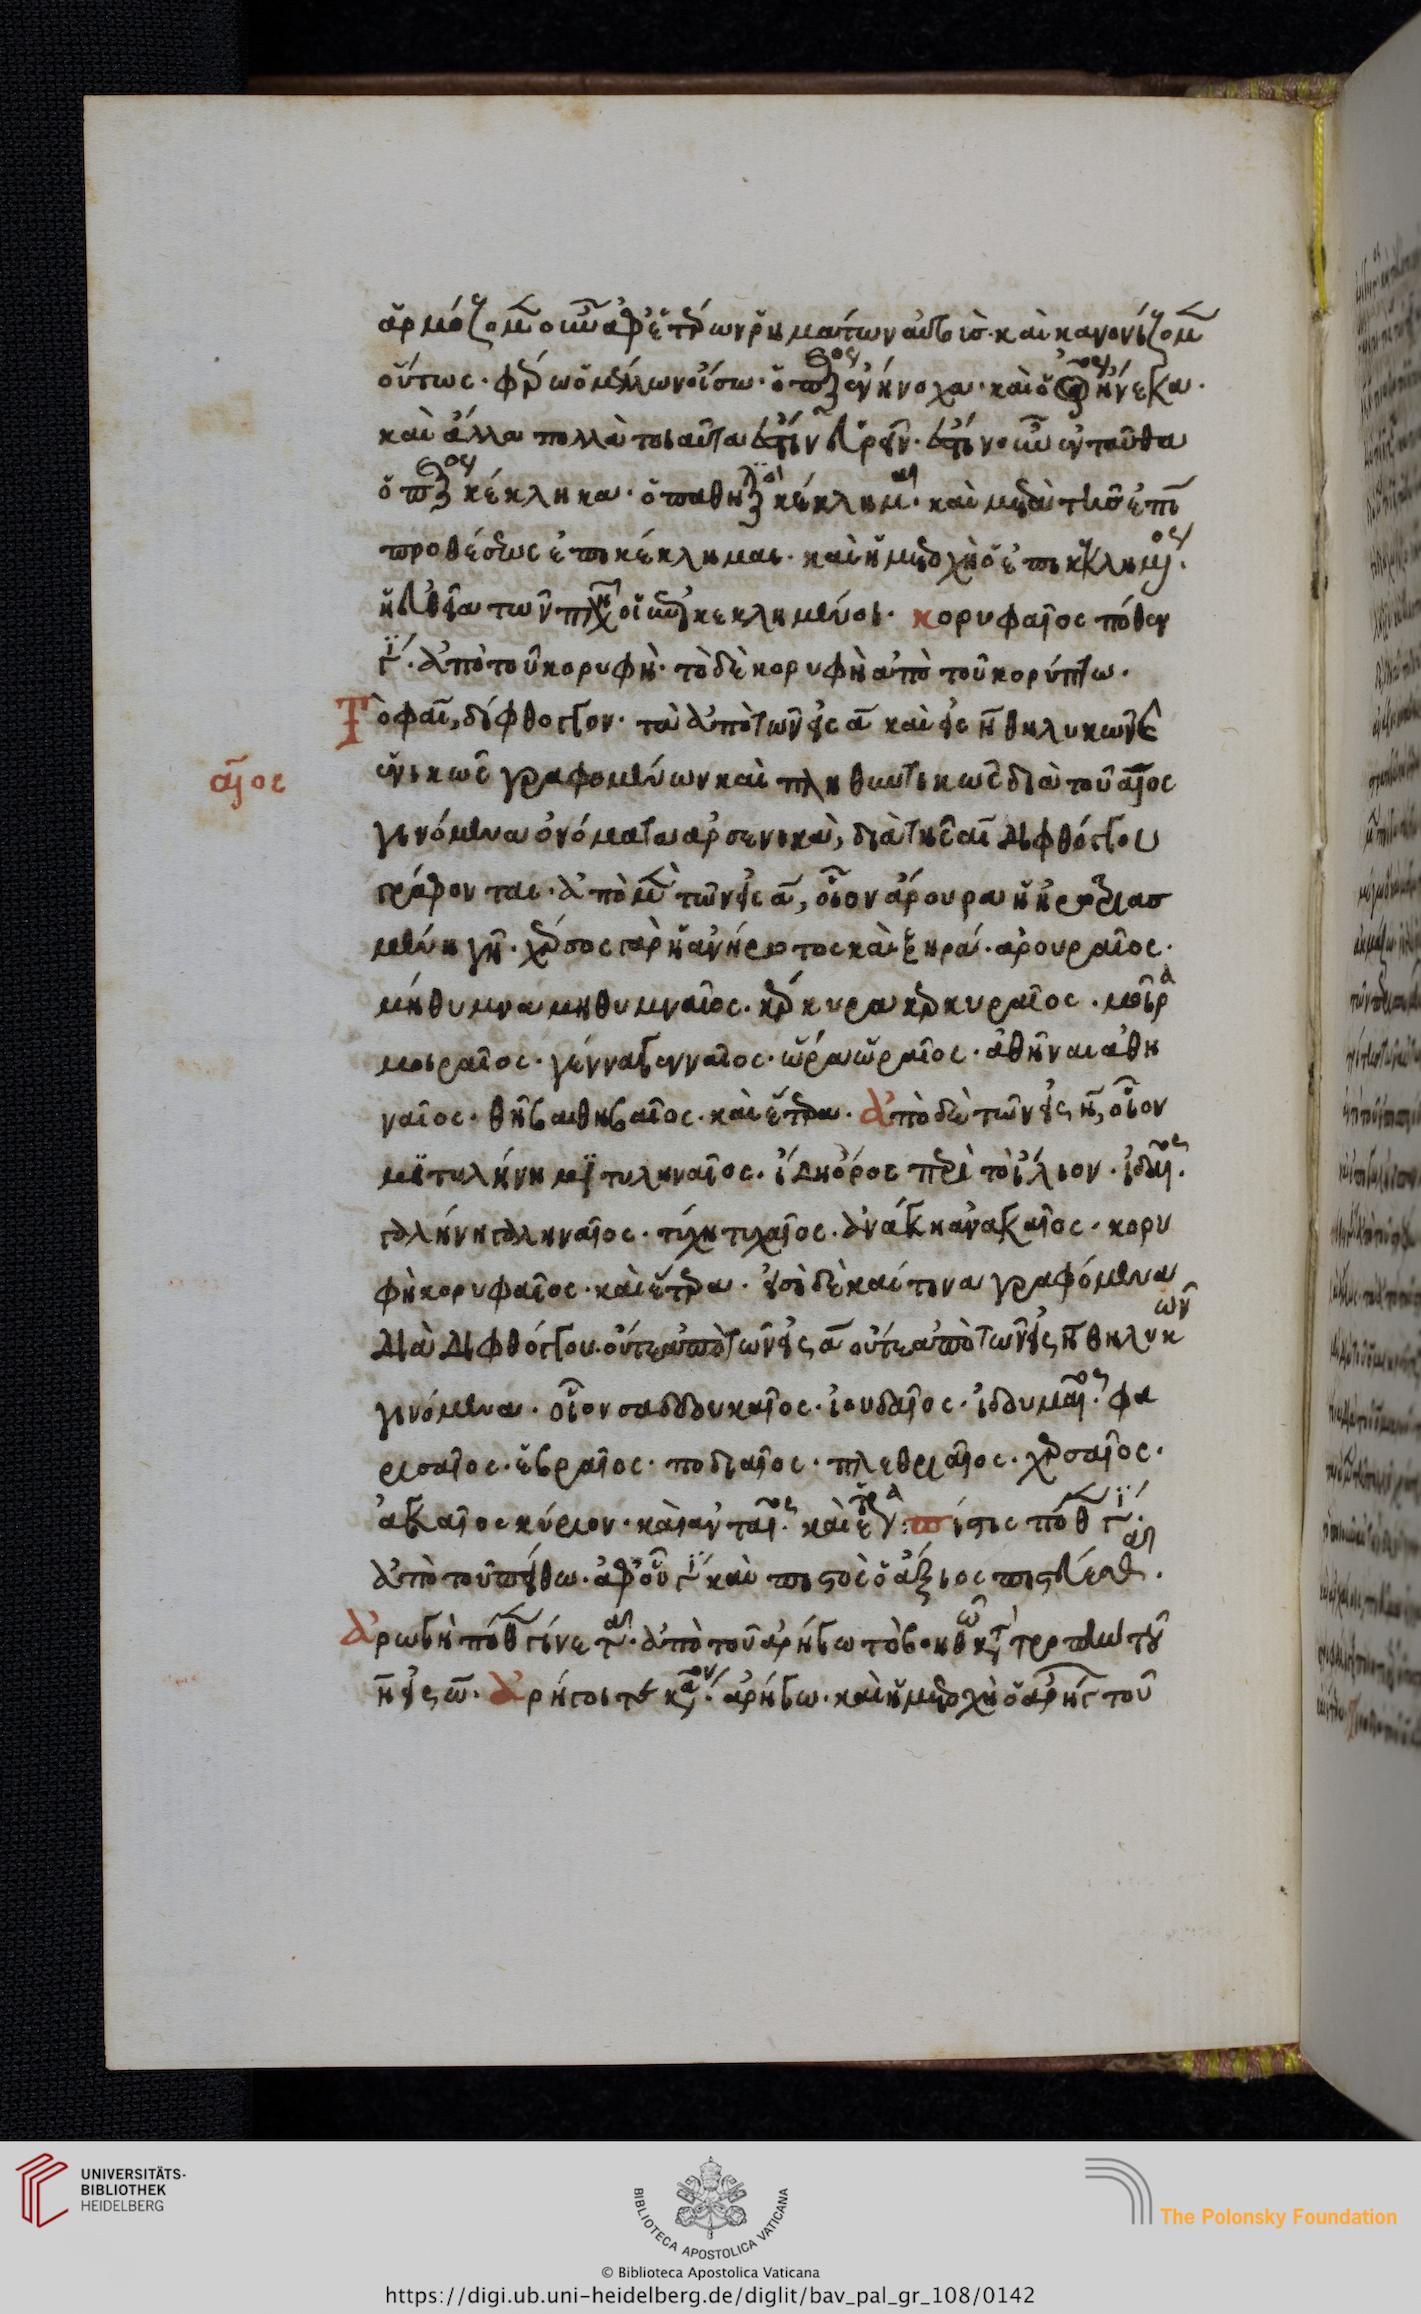 ἁρμόζομ οὖν ἀφ' ἑτέρων ῥημάτων αὖθις· καὶ κανονίζομ
οὕτως· φέρω ὁ μέλλων οἴσω· ὁ πρξ ἐνήνοχα· καὶ ὁ ἤνεγκα·
καὶ ἄλλα πολλὰ τοιαῦτα ἔστιν εὑρεῖν· ἔστιν οὖν ἐνταῦθα
ὁ κέκληκα· ὁ παθη κέκλημαι· καὶ μετὰ τῆς ἐπὶ
προθέσεως ἐπικέκλημαι· καὶ ἡ μετοχὴ ὁ ἐπικεκλημένος·
ἡ εὐθεῖα τῶν πληθ οἱ ἐπικεκλημένοι· κορυφαῖος πόθεν
γί· ἀπὸ τοῦ κορυφή· τὸ δὲ κορυφὴ ἀπὸ τοῦ κορύπτω·
Τὸ φαι, δίφθογγον· τὰ ἀπὸ τῶν εἰς α καὶ εἰς η θηλυκῶν
ἑνικῶς γραφομένων καὶ πληθυντικῶς διὰ τοῦ αιος
αιος
γινόμενα ὀνόματα ἀρσενικὰ, διὰ τῆς αι διφθόγγου
γράφονται· ἀπὸ μὲν τῶν εἰς α, οἷον ἄρουρα ἡ ἠροτριασ
μένη γῆ· χέρσος γὰρ ἡ ἀνήροτος καὶ ξηρά· ἀρουραῖος·
μήθυμνα μηθυμναῖος· κέρκυρα κερκυραῖος· μοῖρα
μοιραῖος· γέννα γενναῖος· ὥρα ὡραῖος· ἀθῆναι ἀθη
ναῖος· θῆβαι θηβαῖος· καὶ ἕτερα· ἀπὸ δὲ τῶν εἰς η, οἷον
μϊτυλήνη μϊτυληναῖος· ἴδη ὄρος περὶ τὸ ἴλιον· ἰδαῖος·
σελήνη σεληναῖος· τύχη τυχαῖος· ἀνάγκη ἀναγκαῖος· κορυ
φὴ κορυφαῖος· καὶ ἕτερα· εἰσὶ δὲ καί τινα γραφόμενα
διὰ διφθόγγου· οὔτε ἀπὸ τῶν εἰς α οὔτε ἀπὸ τῶν εἰς η θηλυκῶν
γινόμενα· οἷον σαδδουκαῖος· ἰουδαῖος· ἰδουμαῖος· φα
ρισαῖος· ἑβραῖος· ποδιαῖος· πλεθριαῖος· χερσαῖος·
ἀγκαῖος κύριον· καὶ ἀνταῖος· καὶ ἕτερα· πίστις πόθεν γί·
ἀπὸ τοῦ πείθω· ἀφ' οὗ γί καὶ πιστὸς ὁ ἄξιος πιστεύεσθαι·
Ἀρωγὴ πόθεν γίνεται· ἀπὸ τοῦ ἀρήγω τὸ βοηθῶ κατὰ τροπὴν τοῦ
η εἰς ω· ἀρήγοι ἀρήγω· καὶ ἡ μετοχὴ ὁ ἀρήγ τοῦ
UNIVERSITÄTS-
BIBLIOTHEK
HEIDELBERG
BIBLIOTECA APOSTOLICA VATICANA
The Polonsky Foundation
© Biblioteca Apostolica Vaticana
https://digi.ub.uni-heidelberg.de/diglit/bav_pal_gr_108/0142